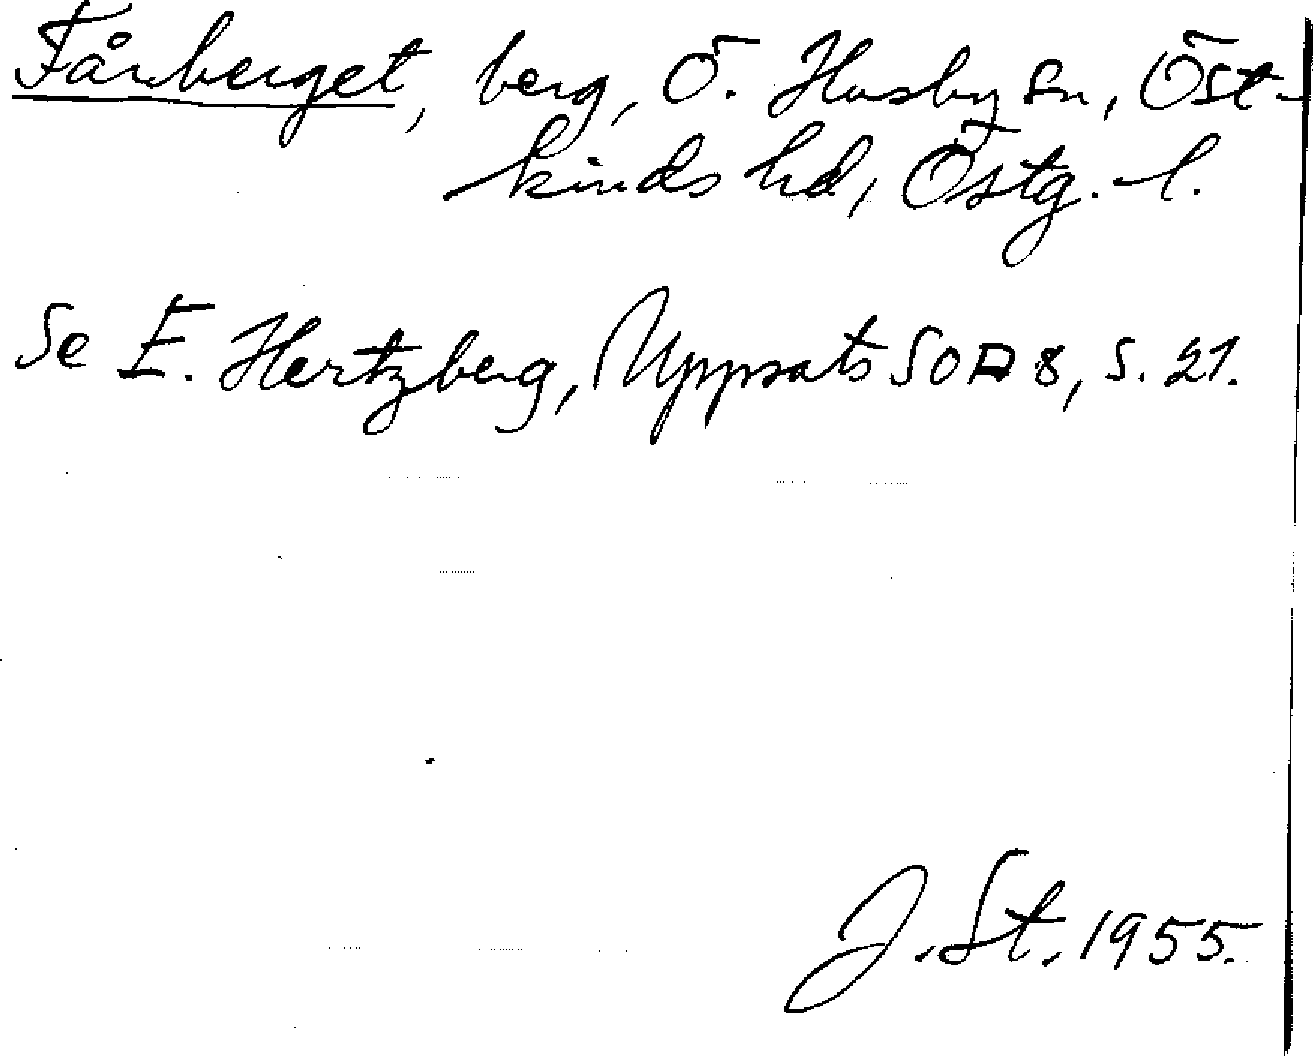 Fårberget, berg, Ö. Husby sn, Öst-
kinds hd, Östg. l.
Se E. Hertzberg, Uppsats SOA 8, s. 21.
J. St. 1955.